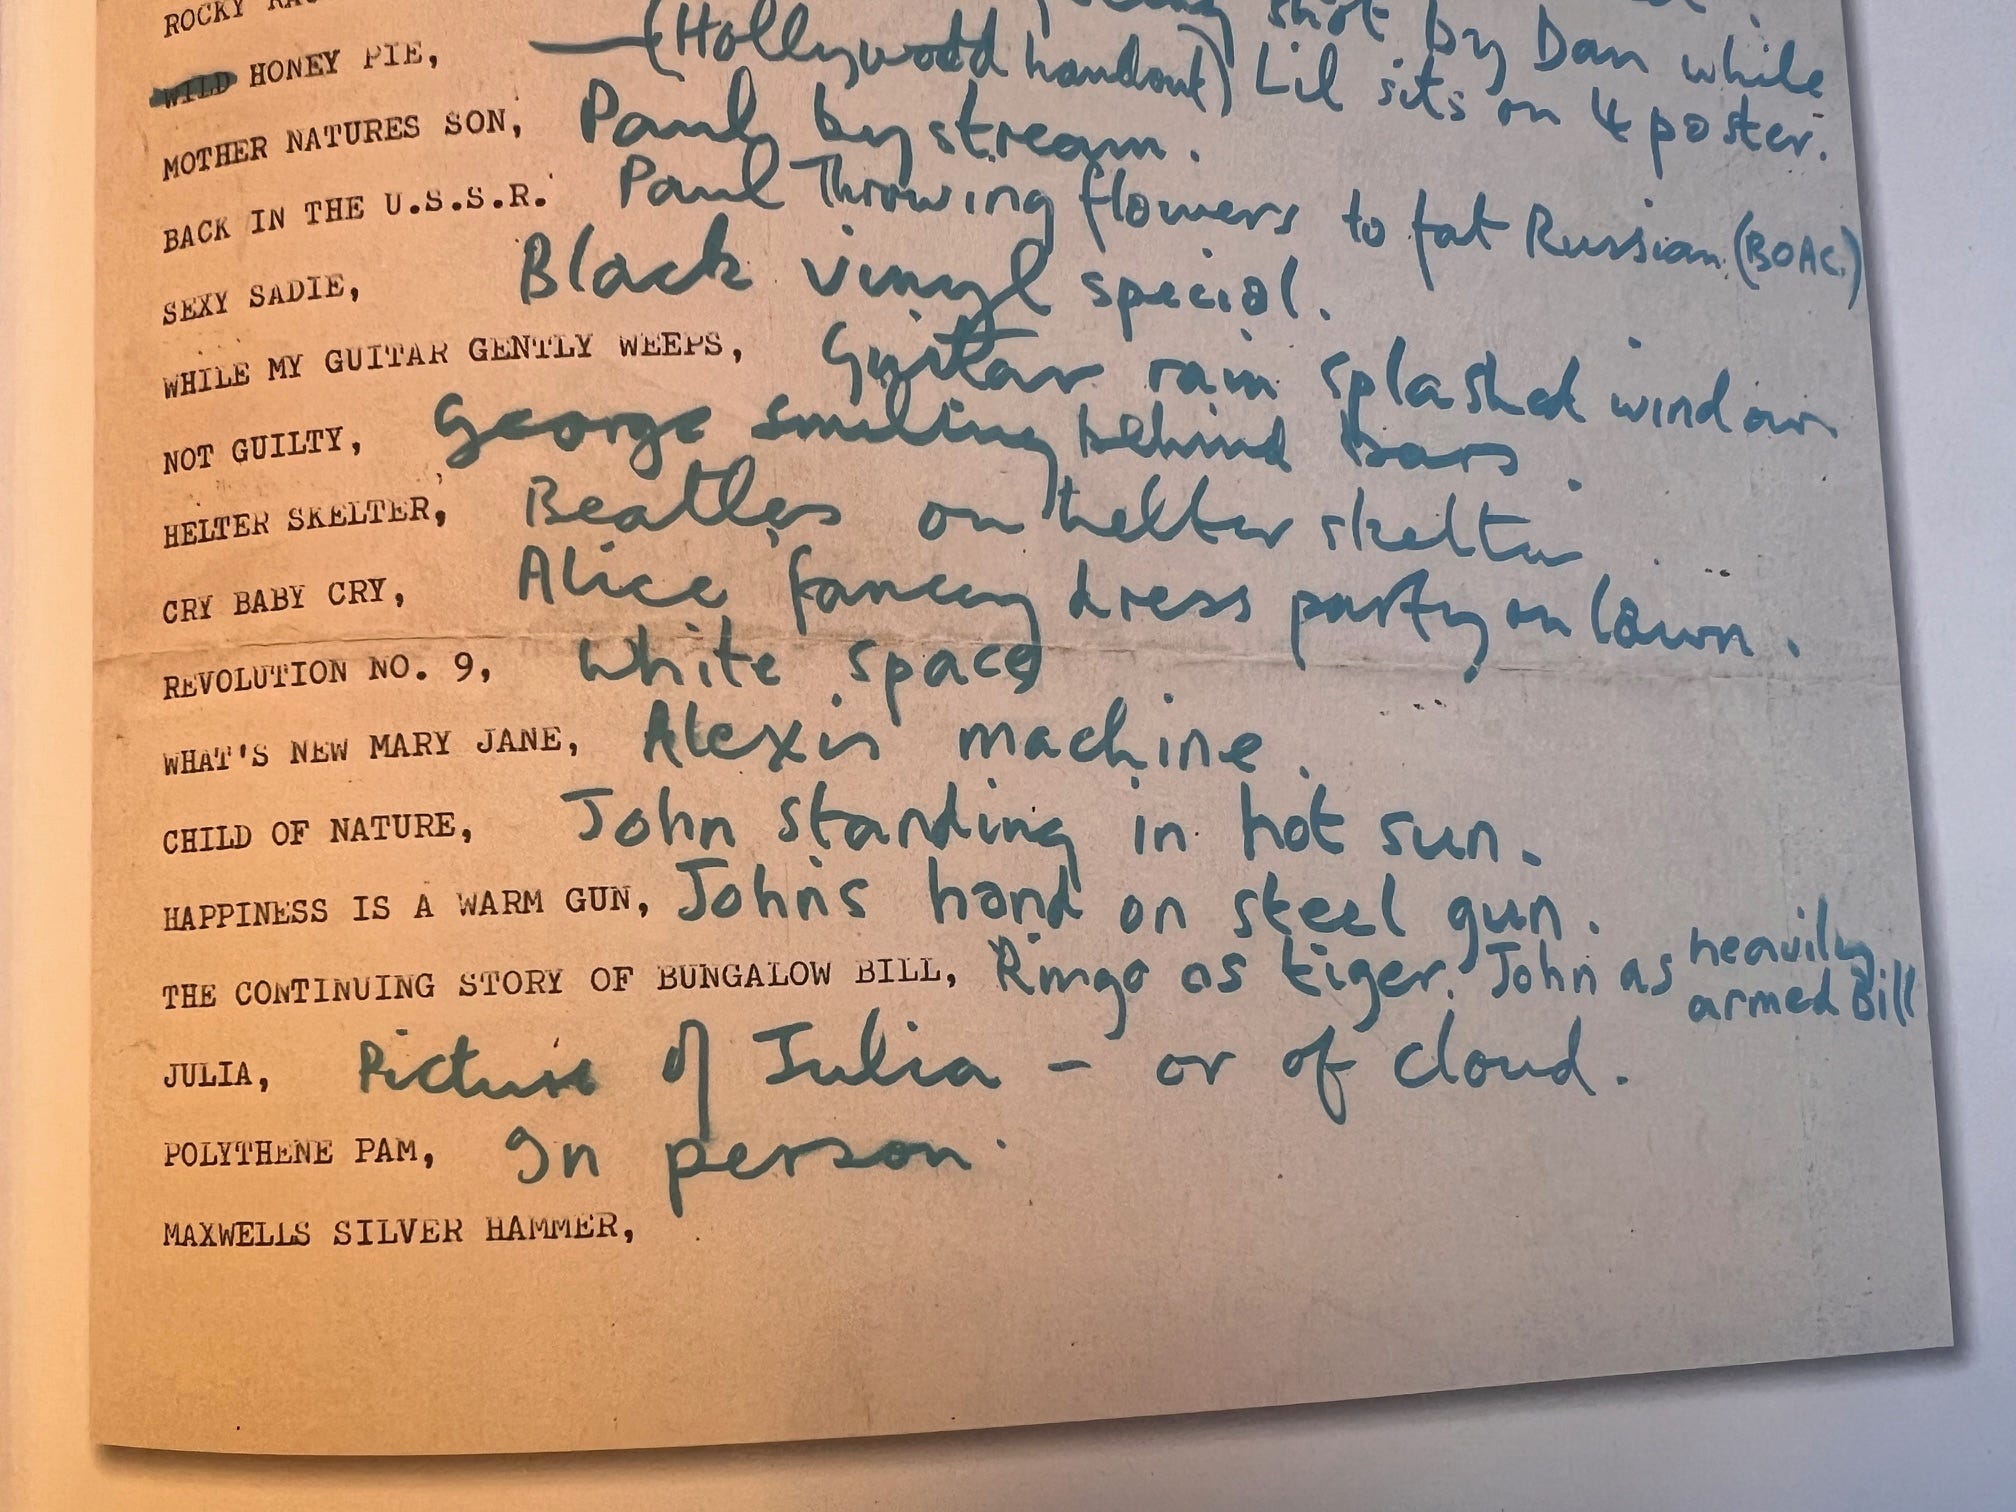 ROCKY
shot by Dan while
WILD HONEY PIE, — (Hollywood handout) Lil sits on 4 poster.
MOTHER NATURES SON, Paul by stream.
BACK IN THE U.S.S.R. Paul Throwing flowers to fat Russian (BOAC.)
SEXY SADIE, Black vinyl special.
WHILE MY GUITAR GENTLY WEEPS, Guitar rain splashed window
NOT GUILTY, George smiling behind bars.
HELTER SKELTER, Beatles on helter skelter
CRY BABY CRY, Alice fancy dress party on lawn.
REVOLUTION NO. 9, White space
WHAT'S NEW MARY JANE, Alexis machine.
CHILD OF NATURE, John standing in hot sun.
HAPPINESS IS A WARM GUN, Johns hand on steel gun.
THE CONTINUING STORY OF BUNGALOW BILL, Ringo as tiger. John as heavily armed Bill
JULIA, Picture of Julia - or of cloud.
POLYTHENE PAM, In person.
MAXWELLS SILVER HAMMER,